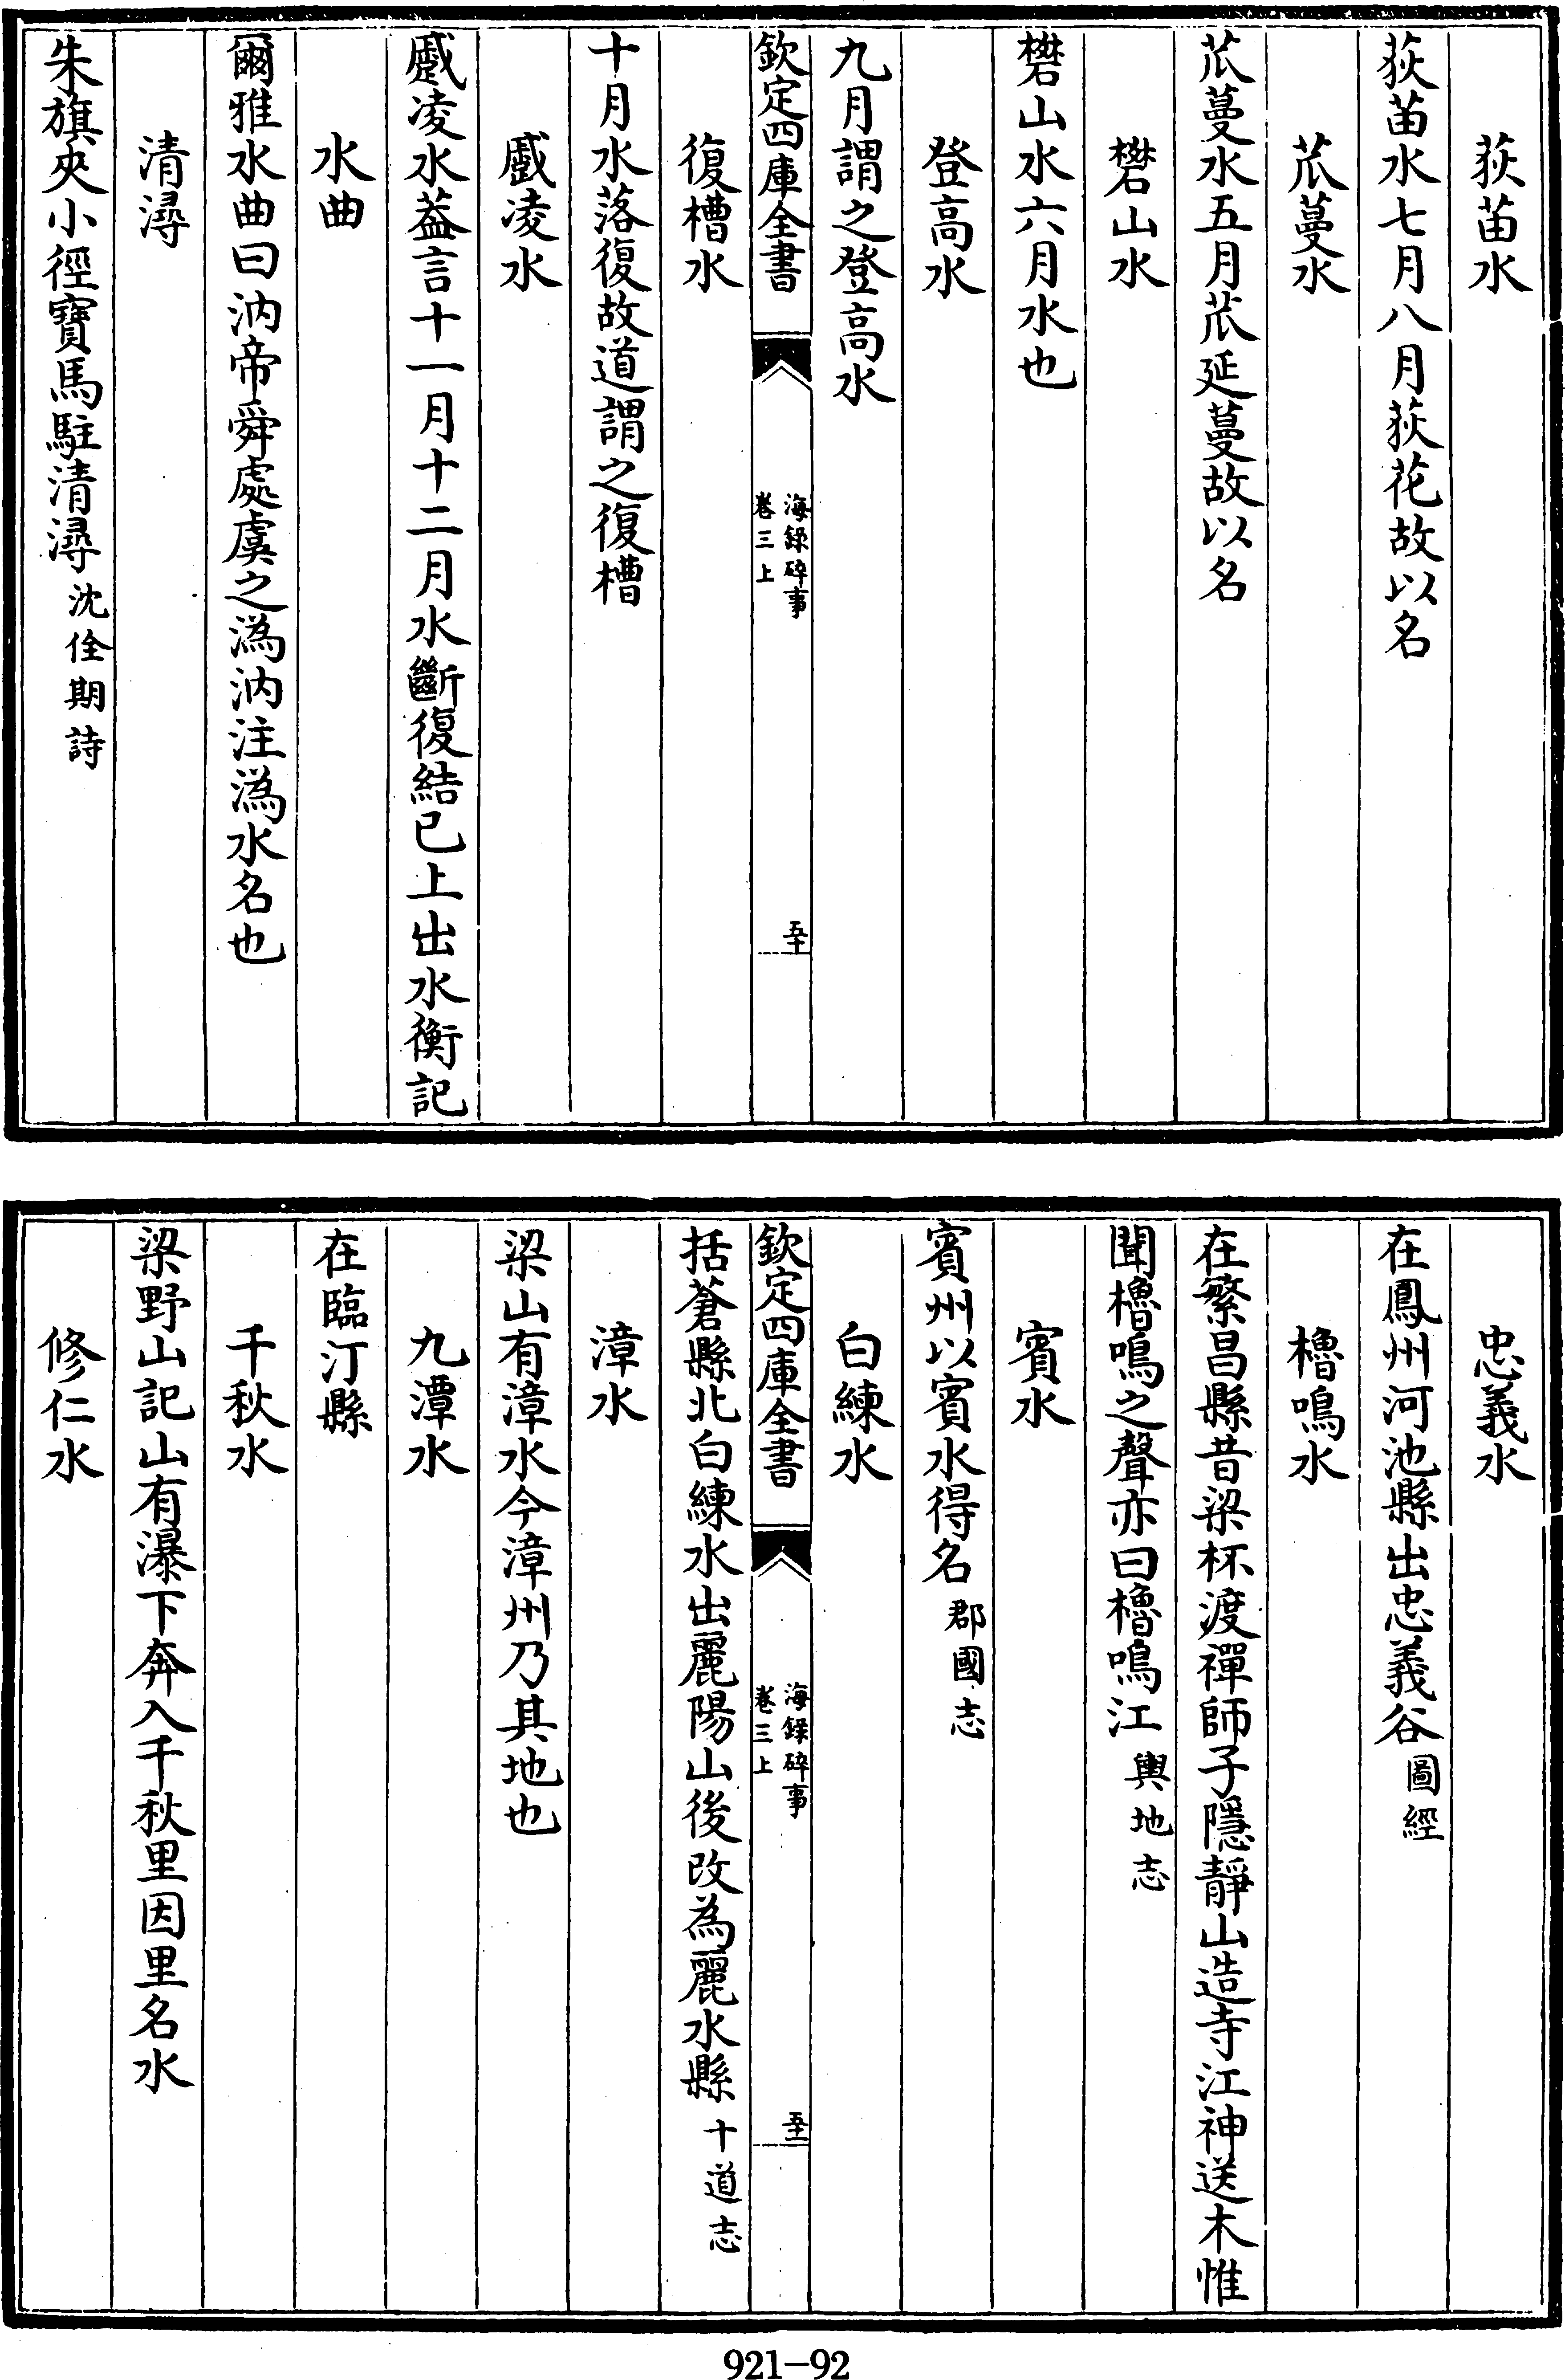 荻苗水
荻苗水七月八月荻花故以名
苽蔓水
苽蔓水五月苽延蔓故以名
礬山水
礬山水六月水也
登高水
九月謂之登高水
欽定四庫全書
海錄碎事
卷三上
五十
復槽水
十月水落復故道謂之復槽
蹙凌水
蹙凌水葢言十一月十二月水斷復結已上出水衡記
水曲
爾雅水曲曰汭帝舜處虞之潙汭注潙水名也
清潯
朱旗夾小徑寶馬駐清潯沈佺期詩
忠義水
在鳳州河池縣出忠義谷圖經
櫓鳴水
在繁昌縣昔梁杯渡禪師子隱靜山造寺江神送木惟
聞櫓鳴之聲亦曰櫓鳴江輿地志
賓水
賓州以賓水得名郡國志
白練水
欽定四庫全書
海錄碎事
卷三上
五十一
括蒼縣北白練水出麗陽山後改為麗水縣十道志
漳水
梁山有漳水今漳州乃其地也
九潭水
在臨汀縣
千秋水
梁野山記山有瀑下奔入千秋里因里名水
修仁水
921-92